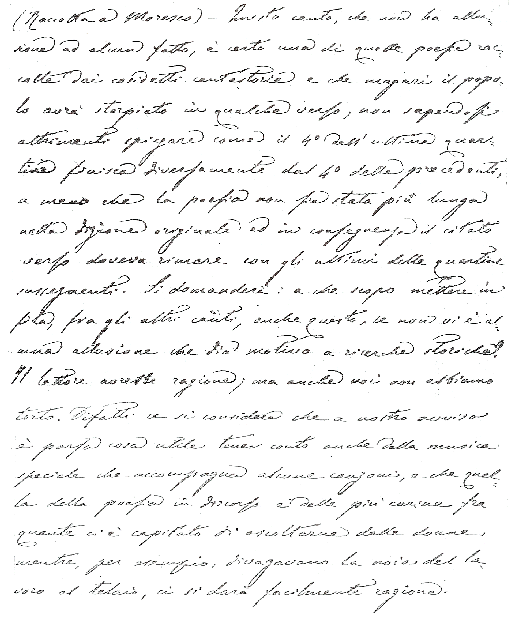 (Raccolta a Moresco) – Questo canto, che non ha allu-
sione ad alcun fatto, è certo una di quelle poesie rac-
colte dai cosidetti cantastorie e che magari il popo-
lo avrà storpiato in qualche verso, non sapendosi
altrimenti spiegare come il 4º dell'ultima quar-
tina finisca diversamente dal 4º delle precedenti,
a meno che la poesia non sia stata più lunga
nella dizione originale ed in conseguenza il citato
verso doveva rimare con gli ultimi delle quartine
susseguenti. Si domanderà: a che scopo mettere in
fila, fra gli altri canti, anche questo, se non vi è al-
cuna allusione che dia motivo a ricerche storiche?
Il lettore avrebbe ragione; ma anche noi non abbiamo
torto. Difatti se si considera che a nostro avviso
è forse cosa utile tener conto anche della musica
speciale che accompagna alcune canzoni, e che quel-
la della poesia in discorso è delle più carine fra
quante ci è capitato di ascoltarne dalle donne,
mentre, per esempio, divagavano la noia del la-
voro al telaio, ci si darà facilmente ragione.